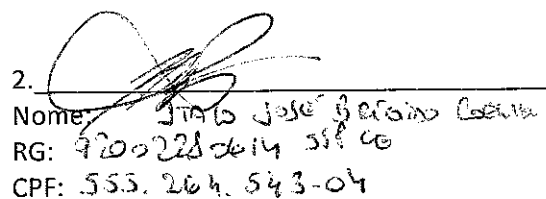 2.
Nome: ITALO JOSÉ BRIGIDO COELHO
RG: SSP CE
CPF: 555.264.543-04